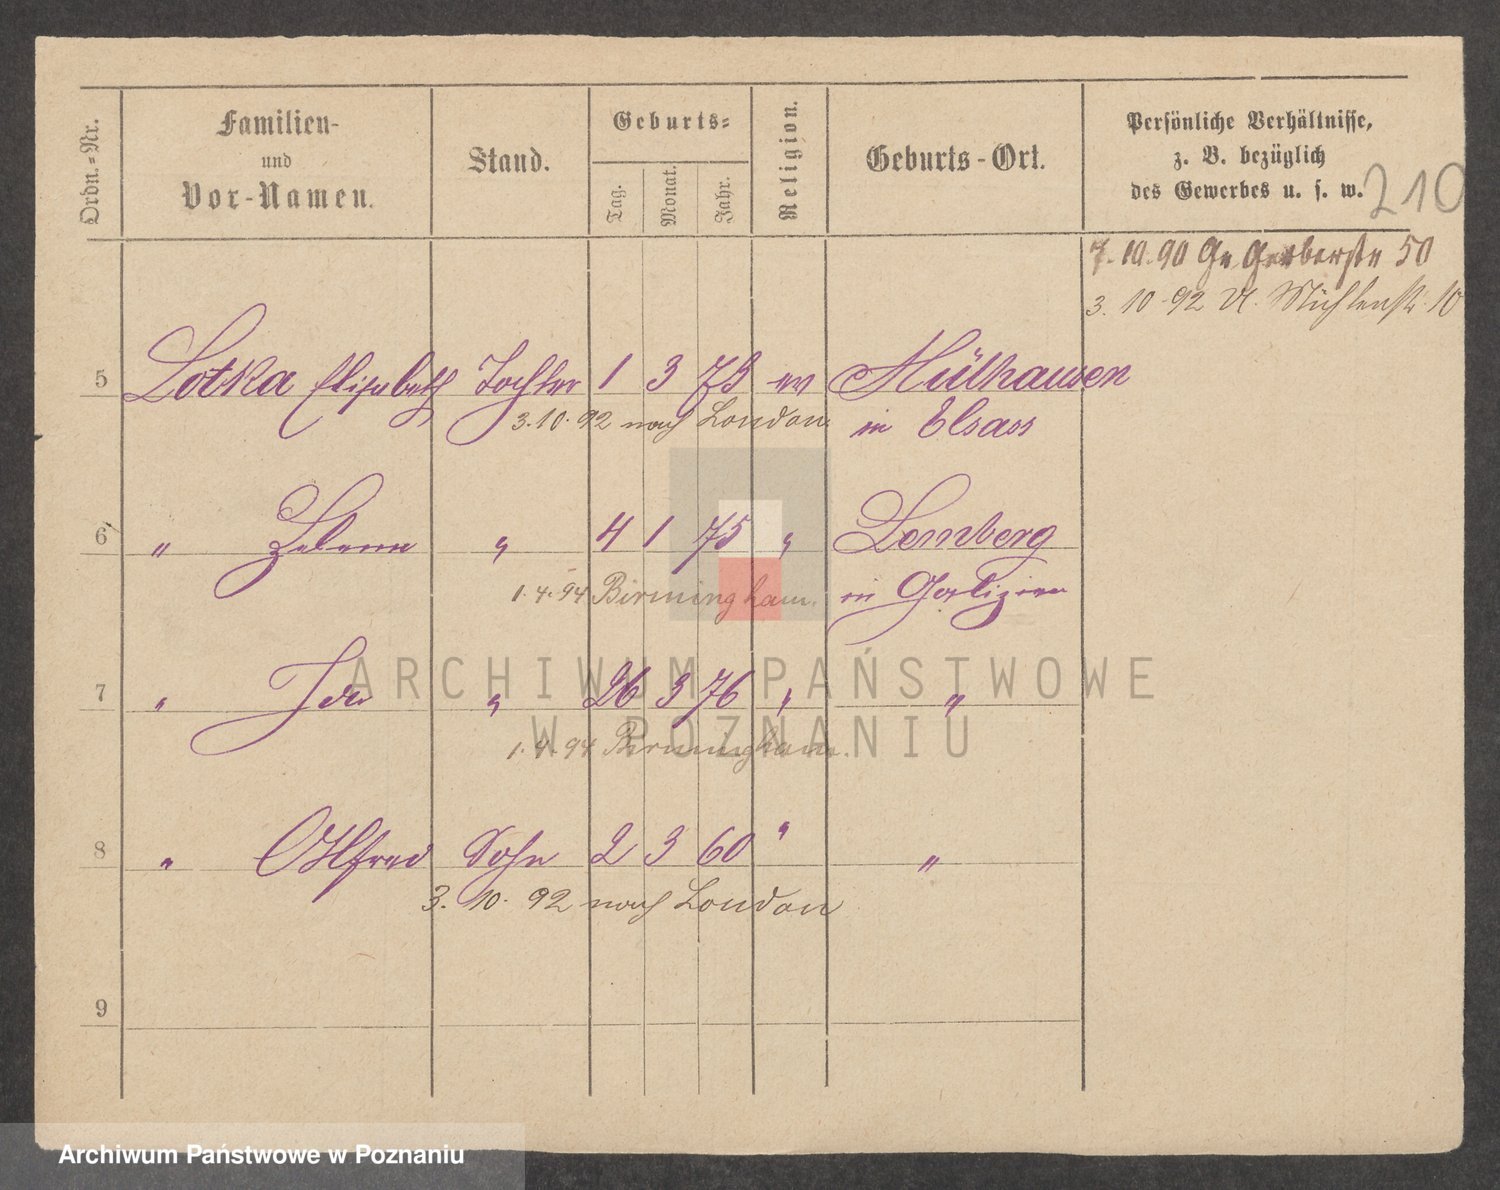 Ordn.=Nr.
Familien-
und
Vor-Namen.
Stand.
Geburts=
Tag.
Monat.
Jahr.
Religion.
Geburts-Ort.
Persönliche Verhältnisse,
z. B. bezüglich
des Gewerbes u. s. w.
210
7.10.90 Gr Gerberstr 50
3. 10 92 Vl. Mühlenstr. 10
5 Lotka Elisabeth Tochter 1 3 73 ev Mülhausen
3.10.92 nach London in Elsass
6 " Helene " 4 1 75 " Lemberg
1.4.94 Birmingham. in Galizien
7 " Ida " 26 3 76 " "
1.4.94 Birmingham.
8 " Alfred Sohn 2 3 60 " "
3. 10. 92 nach London
9
ARCHIWUM PAŃSTWOWE
W POZNANIU
Archiwum Państwowe w Poznaniu